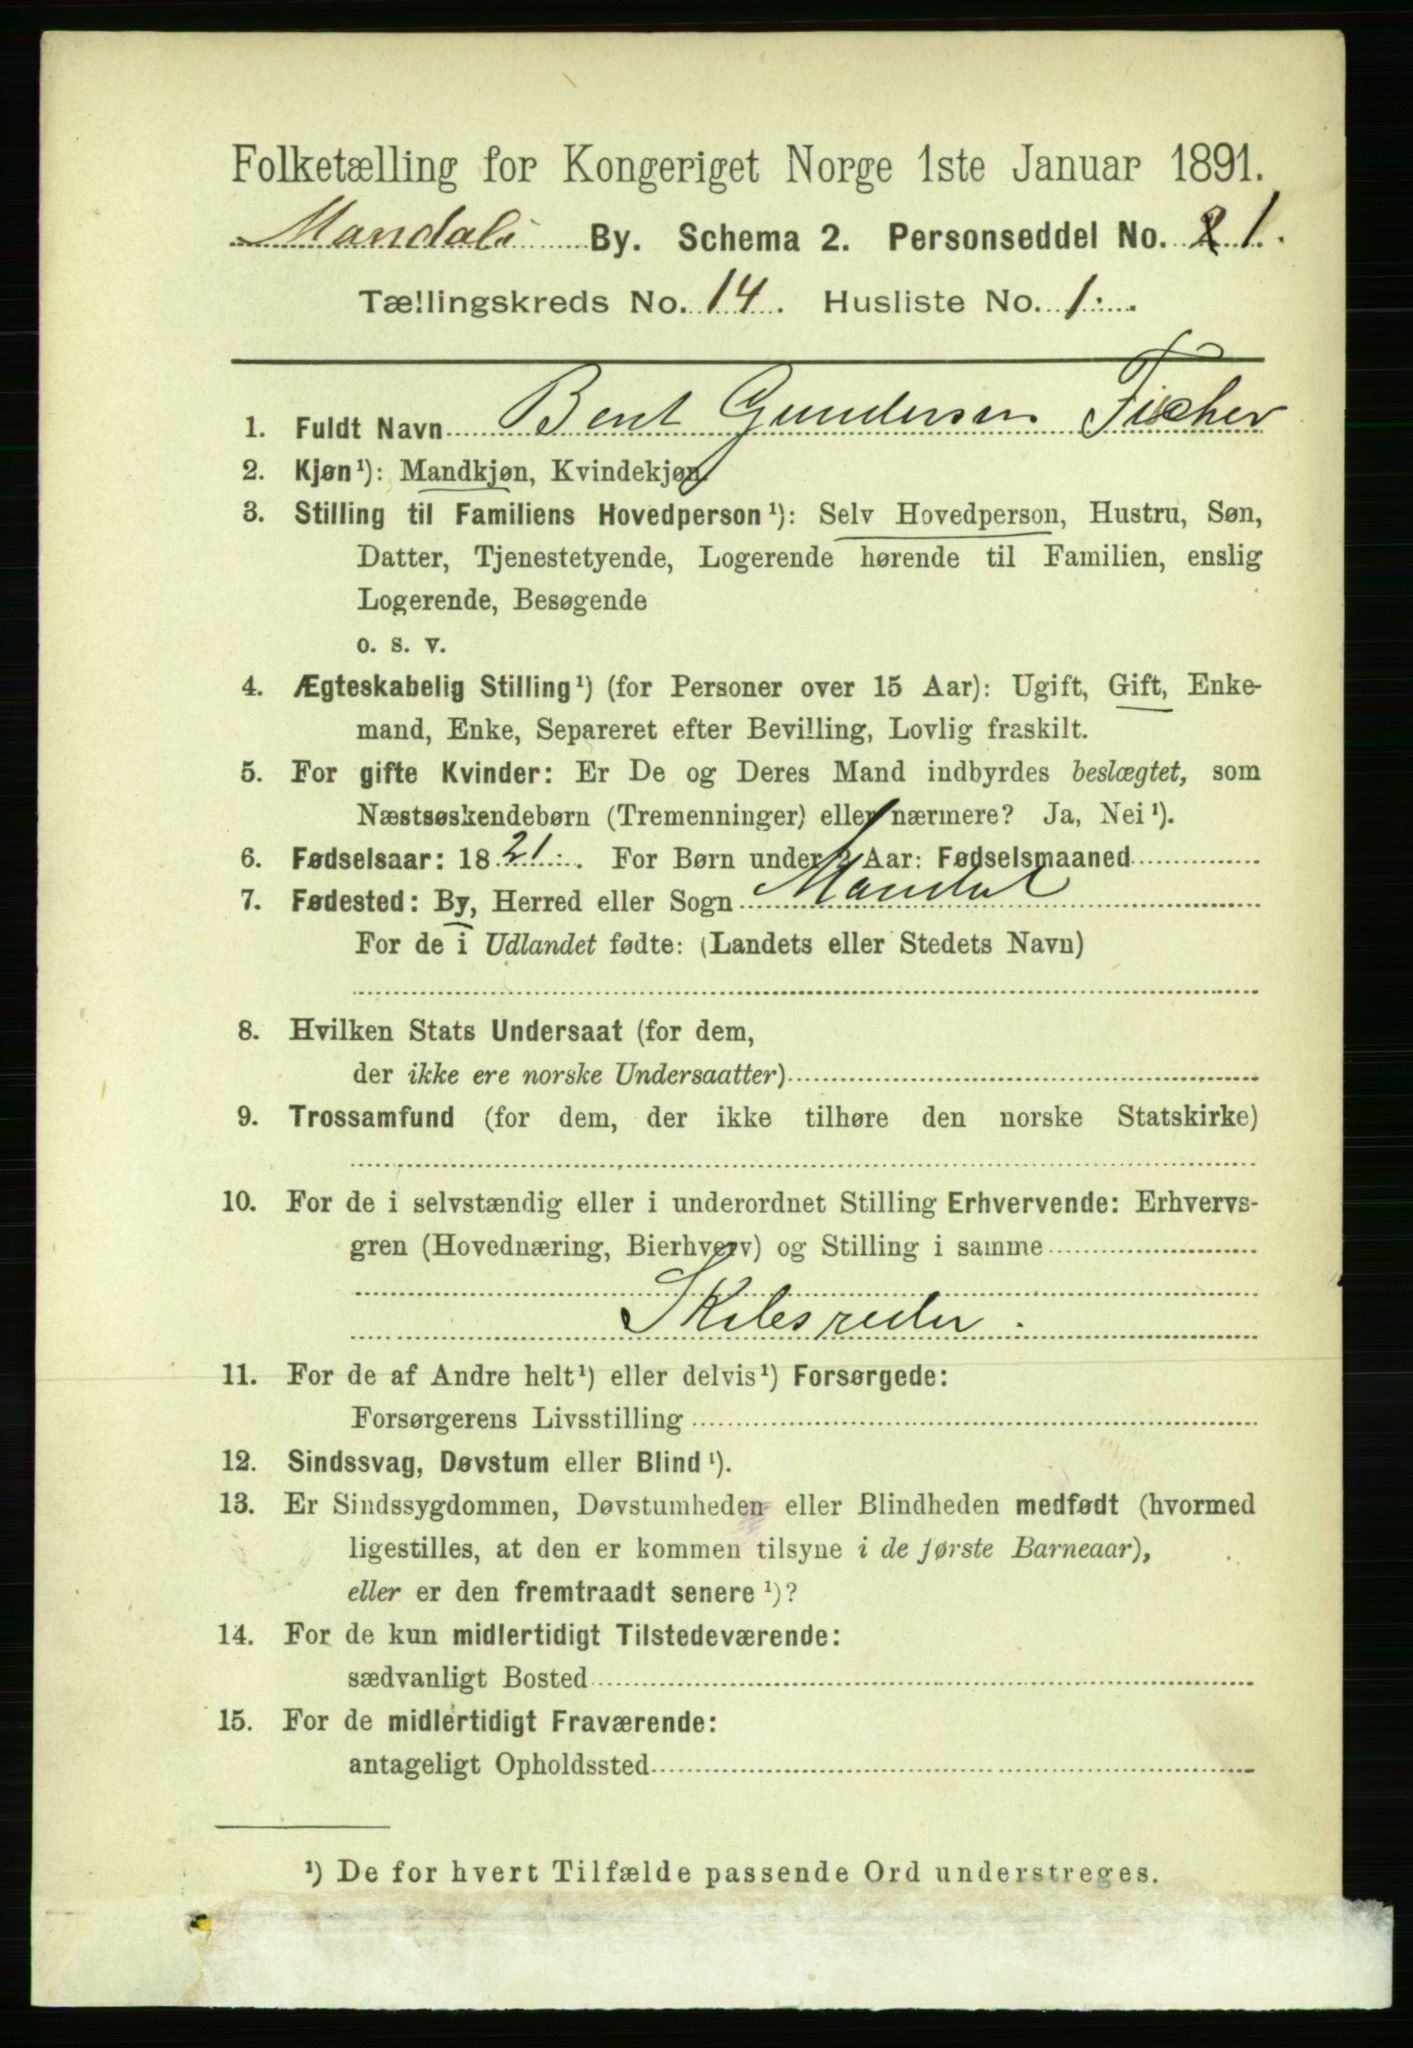 Folketælling for Kongeriget Norge 1ste Januar 1891.
Mandals By. Schema 2. Personseddel No. 1.
Tællingskreds No. 14. Husliste No. 1.
1. Fuldt Navn Bent Gundersen Fischer
2. Kjøn¹): Mandkjøn, Kvindekjøn.
3. Stilling til Familiens Hovedperson¹): Selv Hovedperson, Hustru, Søn,
Datter, Tjenestetyende, Logerende hørende til Familien, enslig
Logerende, Besøgende
o. s. v.
4. Ægteskabelig Stilling¹) (for Personer over 15 Aar): Ugift, Gift, Enke-
mand, Enke, Separeret efter Bevilling, Lovlig fraskilt.
5. For gifte Kvinder: Er De og Deres Mand indbyrdes beslægtet, som
Næstsøskendebørn (Tremenninger) eller nærmere? Ja, Nei¹).
6. Fødselsaar: 1821. For Børn under 2 Aar: Fødselsmaaned
7. Fødested: By, Herred eller Sogn Mandal
For de i Udlandet fødte: (Landets eller Stedets Navn)
8. Hvilken Stats Undersaat (for dem,
der ikke ere norske Undersaatter)
9. Trossamfund (for dem, der ikke tilhøre den norske Statskirke)
10. For de i selvstændig eller i underordnet Stilling Erhvervende: Erhvervs-
gren (Hovednæring, Bierhverv) og Stilling i samme
Skibsreder.
11. For de af Andre helt¹) eller delvis¹) Forsørgede:
Forsørgerens Livsstilling
12. Sindssvag, Døvstum eller Blind¹).
13. Er Sindssygdommen, Døvstumheden eller Blindheden medfødt (hvormed
ligestilles, at den er kommen tilsyne i de første Barneaar),
eller er den fremtraadt senere¹)?
14. For de kun midlertidigt Tilstedeværende:
sædvanligt Bosted
15. For de midlertidigt Fraværende:
antageligt Opholdssted
¹) De for hvert Tilfælde passende Ord understreges.